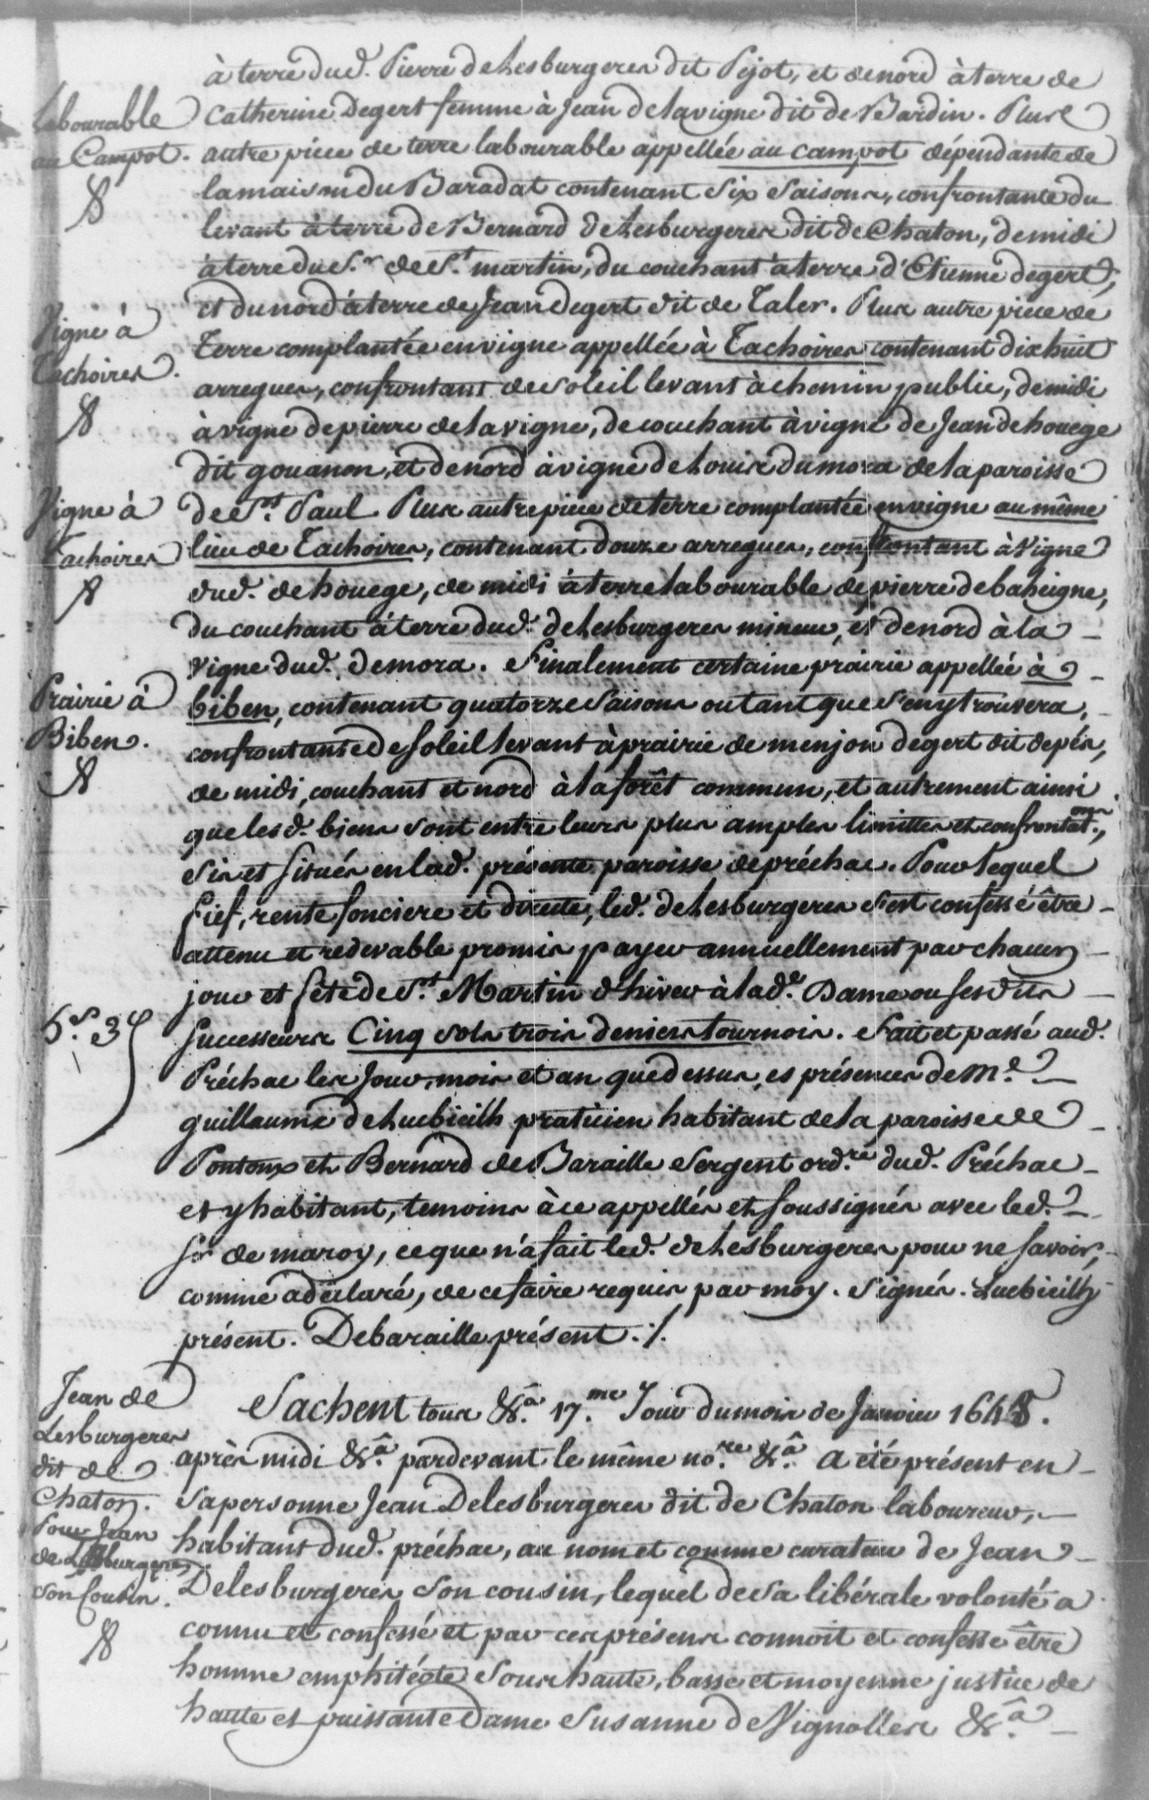 à terre dud. Pierre de Lesburgeres dit Pejot, et de nord à terre de
Labourable
au Campot.
Catherine Degert femme à Jean de Lavigne dit de Bardin. Plus
autre piece de terre labourable appellée au campot dépendante de
la maison du Baradat contenant six saisons, confrontante du
levant à terre de Bernard de Lesburgeres dit de Chaton, de midi
à terre du S.r de S.t martin, du couchant à terre d'Etienne degert,
et du nord à terre de Jean degert dit de Taler. Plus autre piece de
Vigne à
Tachoires.
Terre complantée en vigne appellée à Tachoires contenant dix huit
arregues, confrontant de soleil levant à chemin public, de midi
à vigne de pierre de lavigne, de couchant à vigne de Jean de houege
dit gouanon, et de nord à vigne de Louis dumora de la paroisse
Vigne à
Tachoires
de S.t Paul Plus autre piece de terre complantée en vigne au même
lieu de Tachoires, contenant douze arregues, confrontant à vigne
dud. de houege, de midi à terre labourable de pierre de baheigne,
du couchant à terre dud. de Lesburgeres mineur, et de nord à la
vigne dud. demora. Finalement certaine prairie appellée à
Prairie à
Biben.
biben, contenant quatorze saisons ou tant que s'en y trouvera,
confrontante de soleil levant à prairie de menjon degert dit de pés,
de midi, couchant et nord à la forêt commun, et autrement ainsi
que lesd. biens sont entre leurs plus amples limittes et confrontat.ons,
sis et situés en lad. présente paroisse de préchac. Pour lequel
fief, rente fonciere et directe, led. de Lesburgeres s'est confessé être
attenu et redevable promis payer annuellement par chacun
jour et fête de S.t Martin d'hiver à lad.e Dame ou sesdits
5.s 3.d
successeurs Cinq sols trois deniers tournois. Fait et passé aud.
Préchac les Jour, mois et an que dessus, es présences de m.e
guillaume de Lucbieilh praticien habitant de la paroisse de
Pontonx et Bernard de Baraille Sergent ord.re dud. Préchac
et y habitant, temoins à ce appellés et soussignés avec led.
s.r de maroy, ce que n'a fait led. de Lesburgeres pour ne savoir,
comme a déclaré, de ce faire requis par moy. Signés. Lucbieilh
présent. Debaraille présent ./.
Jean de
Lesburgeres
dit de
Chaton.
Pour Jean
de Lesburgeres
son Cousin.
Sachent tous &.a 17.me Jour du mois de Janvier 1648.
après midi &.a pardevant le même no.re &.a a été présent en
sa personne Jean Delesburgeres dit de Chaton laboureur,
habitant dud. préchac, au nom et comme curateur de Jean
Delesburgeres son cousin, lequel de sa libérale volonté a
connu et confessé et par ces présens connoit et confesse être
homme emphitéote sous haute, basse et moyenne justice de
haute et puissante Dame Susanne de Vignolles &.a